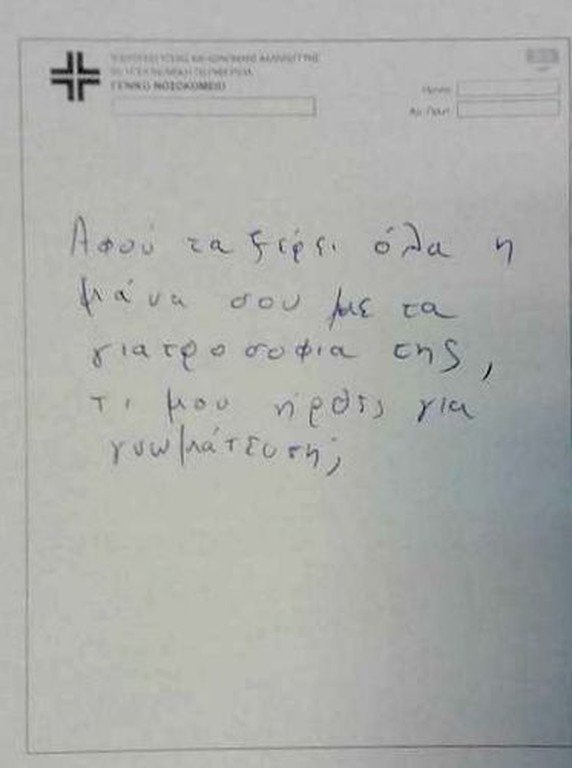 ΥΠΟΥΡΓΕΙΟ ΥΓΕΙΑΣ ΚΑΙ ΚΟΙΝΩΝΙΚΗΣ ΑΛΛΗΛΕΓΓΥΗΣ
ΓΕΝΙΚΟ ΝΟΣΟΚΟΜΕΙΟ
Αφού τα ξέρει όλα η
μάνα σου με τα
γιατροσόφια της,
τι μου ήρθες για
γνωμάτευση;